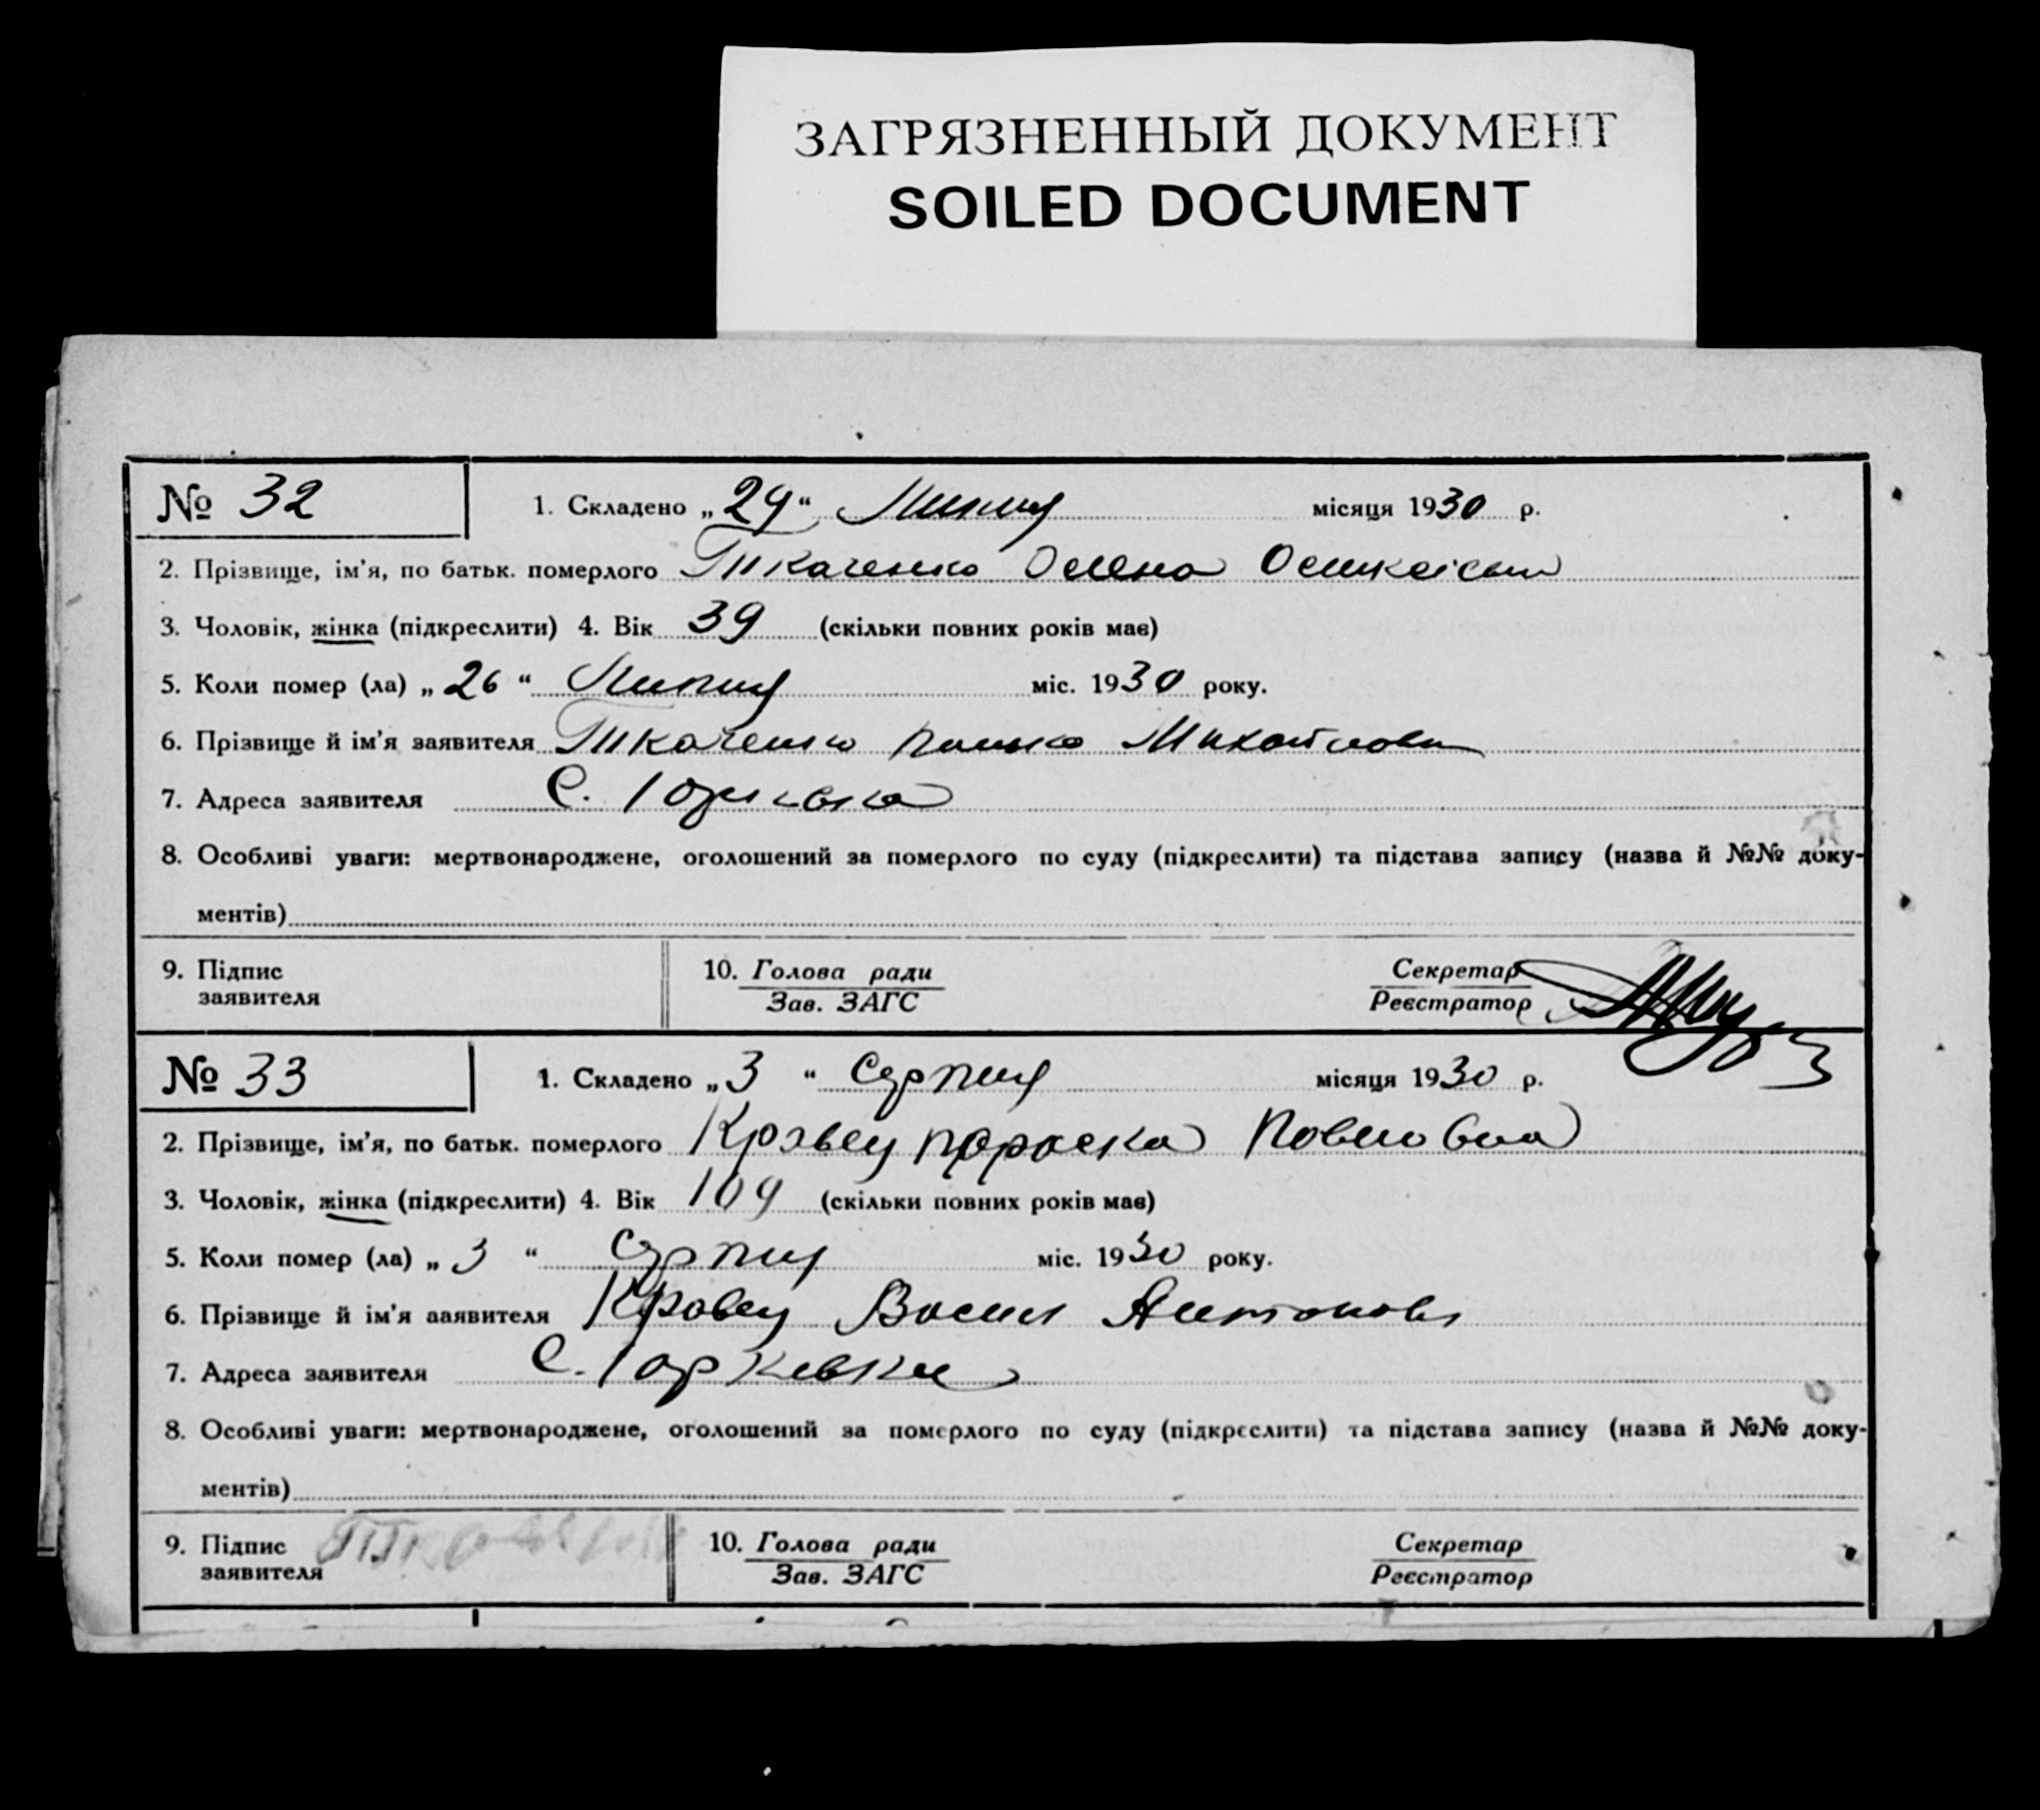 ЗАГРЯЗНЕННЫЙ ДОКУМЕНТ
SOILED DOCUMENT
№ 32 1. Складено „29“ Липня місяця 1930 р.
2. Прізвище, ім'я, по батьк. померлого Ткаченко Олена
3. Чоловік, жінка (підкреслити) 4. Вік 39 (скільки повних років має)
5. Коли помер (ла) „26“ Липня міс. 1930 року.
6. Прізвище й ім'я заявителя Ткаченко Михайлови
7. Адреса заявителя С.
8. Особливі уваги: мертвонароджене, оголошений за померлого по суду (підкреслити) та підстава запису (назва й №№ доку-
ментів)
9. Підпис заявителя 10. Голова ради Зав. ЗАГС Секретар Реєстратор
№ 33 1. Складено „3“ Серпня місяця 1930 р.
2. Прізвище, ім'я, по батьк. померлого Кравец Параска Павловна
3. Чоловік, жінка (підкреслити) 4. Вік 109 (скільки повних років має)
5. Коли помер (ла) „3“ Серпня міс. 1930 року.
6. Прізвище й ім'я заявителя Кравец Васил Антонов
7. Адреса заявителя С.
8. Особливі уваги: мертвонароджене, оголошений за померлого по суду (підкреслити) та підстава запису (назва й №№ доку-
ментів)
9. Підпис заявителя 10. Голова ради Зав. ЗАГС Секретар Реєстратор